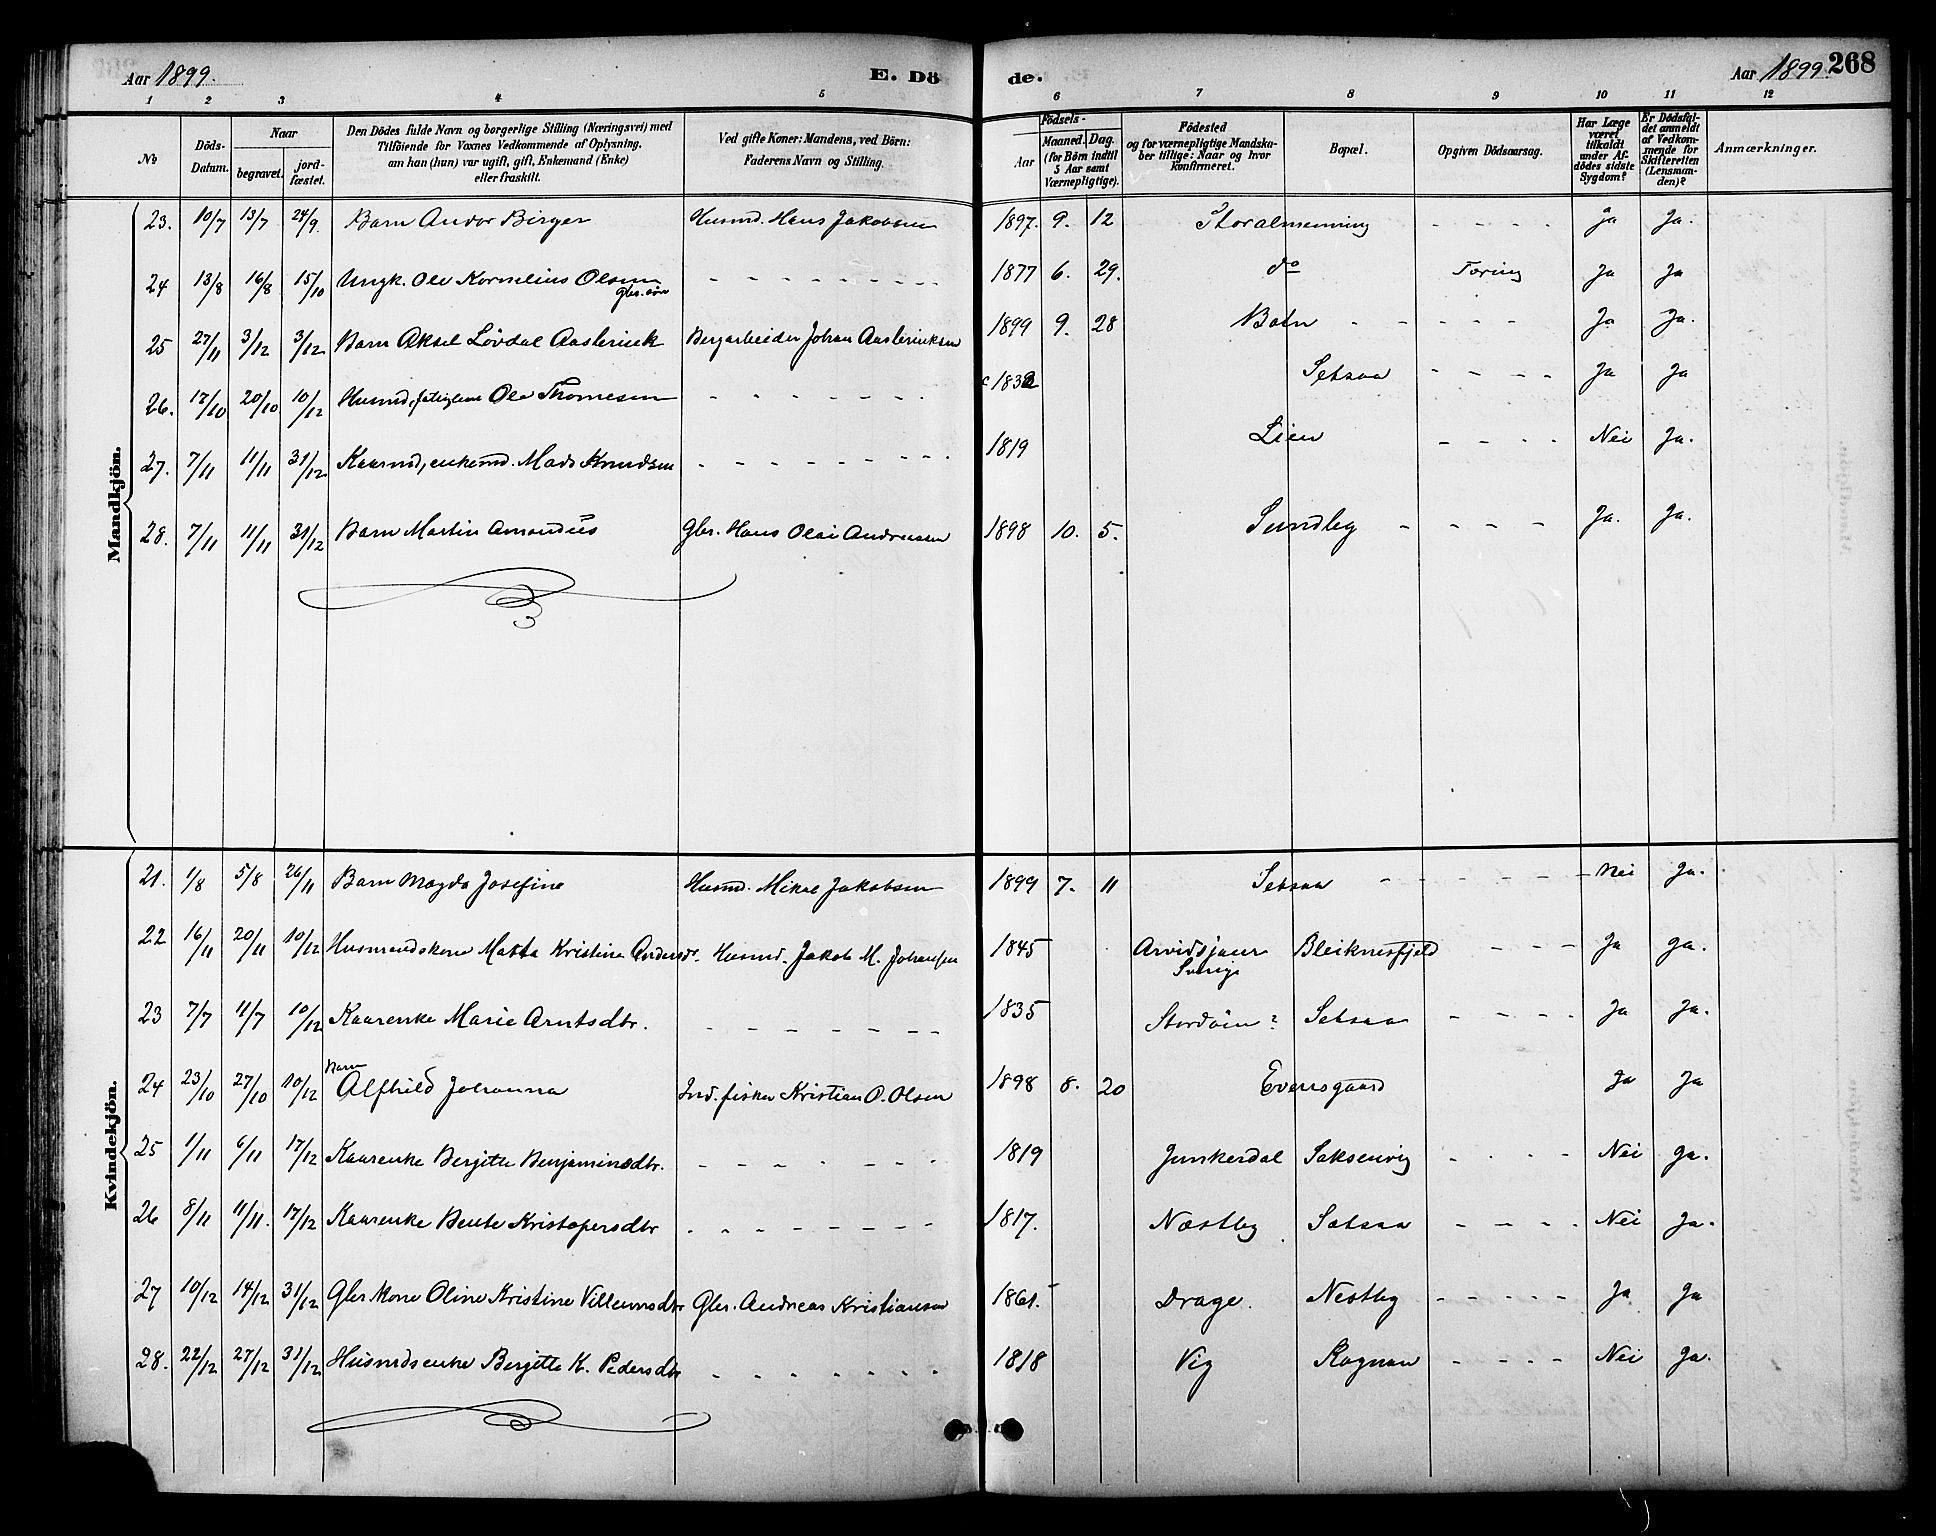 Aar 1899. E. Dö de. Aar 1899. 268
1 2 3 4 5 6 7 8 9 10 11 12
No
Döds-Datum.
Naar
begravet.
jordfæstet.
Den Dödes fulde Navn og borgerlige Stilling (Næringsvei) med
Tilföiende for Voxnes Vedkommende af Oplysning,
om han (hun) var ugift, gift, Enkemand (Enke)
eller fraskilt.
Ved gifte Koner: Mandens, ved Börn:
Faderens Navn og Stilling.
Födsels-
Aar
Maaned. Dag.
(for Börn indtil
5 Aar samt
Værnepligtige).
Födested
og for værnepligtige Mandskaber tillige: Naar og hvor
Konfirmeret.
Bopæl.
Opgiven Dödsaarsag.
Har Læge
været
tilkaldt
under Afdödes sidste
Sygdom?
Er Dödsfaldet anmeldt
af Vedkommende for
Skifteretten
(Lensmanden)?
Anmærkninger.
Mandkjön.
23. 10/7 13/7 24/9. Barn Andor Birger Husmd. Hans Jakobsen 1897. 9. 12 Storalmenning - - - - Ja Ja.
24 13/8 16/8 15/10 Ungk. Ole Kornelius Olsen - - - - - - - - 1877 6. 29. do Tæring Ja Ja
Gbr. søn
25 27/11 3/12 3/12 Barn Aksel Løvdal Aslerieck Bergarbeider Johan Aslericksen 1899 9. 28 Botn - - - - - Ja Ja.
26. 17/10 20/10 10/12 Husmd, fatiglem Ole Thomesen - - - - - - - 1832 Setsaa - - - - Ja Ja
27. 7/11 11/11 31/12 Kaarmd, enkemd. Mads Knudsen - - - - - - - - - 1819 Lien - - - - Nei Ja.
28. 7/11 11/11 31/12 Barn Martin Amandus Gbr. Hans Olai Andreasen 1898 10. 5. Sundby - - - - Ja. Ja.
Kvindekjön.
21. 1/8 5/8 26/11 Barn Magda Josefine Husmd. Mikal Jakobsen 1899 7. 11 Setsaa - - - - - - Nei Ja.
22 16/11 20/11 10/12 Husmandskone Matta Kristine Andersdr. Husmd. Jakob M. Johansen 1845 Arvidsjaur Bleiknesfjeld - - - Ja Ja.
Sverige
23 7/7 11/7 10/12 Kaarenke Marie Arntsdtr. - - - - - - - 1835 Stordøin? Setsaa - - - - Ja Ja.
24 23/10 27/10 10/12 Barn Alfhild Johanna Ind. fisker Kristian O. Olsen 1898 8. 20 Evensgaard Ja Ja
25 1/11 6/11 17/12 Kaarenke Berjitte Benjaminsdtr. - - - - - - - 1819 Junkerdal Saksenvig - - - - Nei Ja.
26 8/11 11/11. 17/12 Kaarenke Bente Kristofersdtr - - - - - - - 1817. Næstby Sætsaa - - - - Nei Ja.
27 10/12 14/12 31/12 Gbr kone Oline Kristine Villumsdtr Gbr. Andreas Kristiansen 1861. Drage. Nestby - - - - - Ja Ja
28. 22/12 27/12 31/12 Husmdsenke Berjitte K. Pedersdtr - - - - - - - 1818 Vig Rognan - - - - Nei Ja.